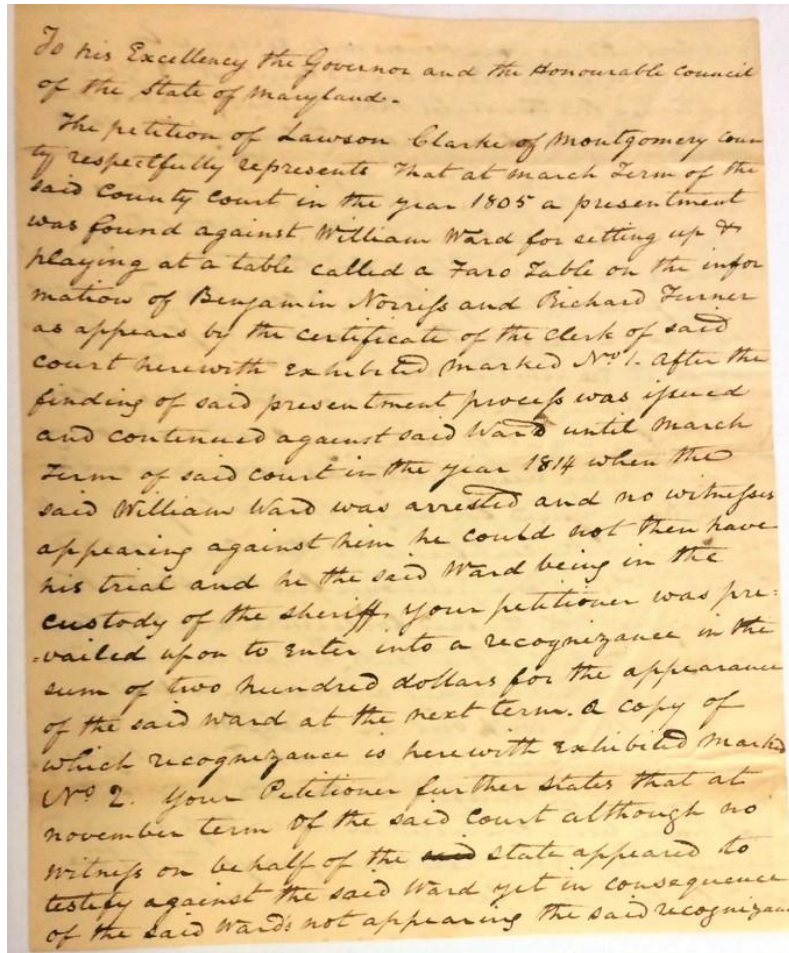 To his Excellency the Governor and the Honourable Council
of the State of Maryland.
The petition of Lawson Clarke of Montgomery coun
ty respectfully represents That at march Term of the
said County Court in the year 1805 a presentment
was found against William Ward for setting up &
playing at a table called a Faro Table on the infor
mation of Benjamin Norriss and Richard Turner
as appears by the certificate of the clerk of said
court herewith exhibited marked No. 1. After the
finding of said presentment process was issued
and continued against said Ward until March
Term of said court in the year 1814 when the
said William Ward was arrested and no witnesses
appearing against him he could not then have
his trial and he the said Ward being in the
custody of the sheriff, your petitioner was pre=
=vailed upon to enter into a recognizance in the
sum of two hundred dollars for the appearance
of the said ward at the next term. a copy of
which recognizance is herewith exhibited marked
No 2. Your Petitioner further states that at
november term of the said court although no
witness on behalf of the said state appeared to
testify against the said Ward yet in consequence
of the said Ward's not appearing the said recognizanc